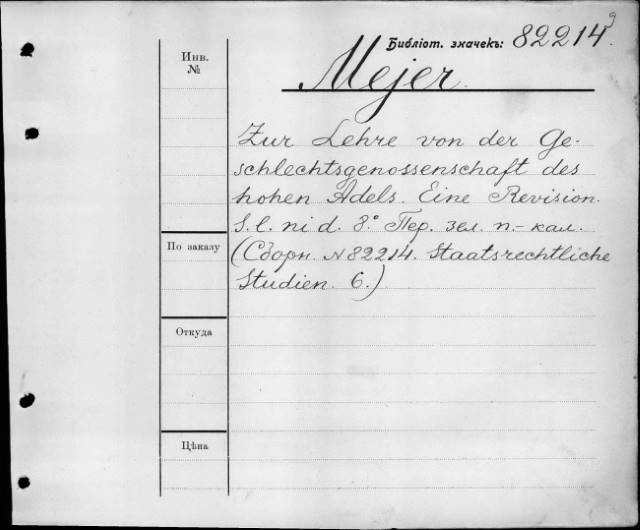 Библіот. значекъ: 82214 9
Mejer.
Инв.
№
Zur Lehre von der Ge-
schlechtsgenossenschaft des
hohen Adels. Eine Revision.
S. l. ni d. 8.° Пер. зел. п.-кал.
(Сборн. № 82214. Staatsrechtliche
Studien. 6.)
По заказу
Откуда
Цѣна